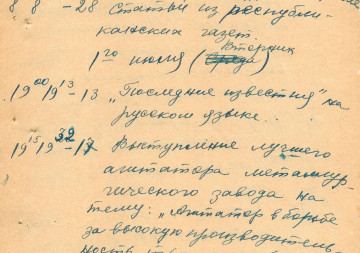 8 8 - 28 Статьи из республи-
канских газет.
Вторник
1го июля (Среда)
19 00 19 13 - 13 „Последние известия" на
русском языке.
19 15 19 32 - 17 Выступление лучшего
агитатора металлур
гического завода на
тему: „Агитатор в борьбе
за высокую производитель
ность